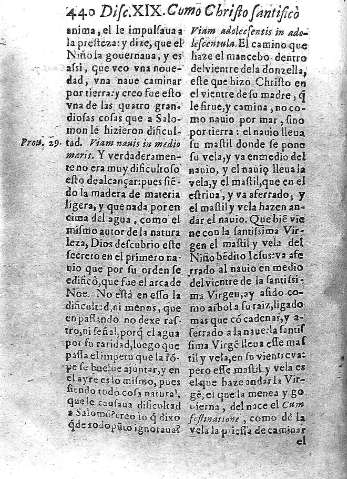 440 Disc. XIX. Cumo Christo santificò
anima, el le impulsaua a
la presteza: y dize, que el
Niño la gouernaua, y es
assi, que veo vna noue-
dad, vna naue caminar
por tierra: y creo fue esto
vna de las quatro gran-
diosas cosas que a Salo-
mon le hizieron dificul-
Prou. 29. tad. Viam nauis in medio
maris. Y verdaderamen-
te no era muy dificultoso
esto de alcançar: pues siẽ-
do la madera de materia
ligera, y que nada por en
cima del agua, como el
mismo autor de la natura
leza, Dios descubrio este
secreto en el primero na-
uio que por su orden se
edificò, que fue el arca de
Noe. No està en esso la
dificultad, ni menos, que
en passando no dexe ras-
tro, ni señal, porq̃ el agua
por su raridad, luego que
passa el impetu que la rõ-
pe se buelue a juntar, y en
el ayre es lo mismo, pues
siendo todo cosa natural,
que le causaua dificultad
a Salomõ? creo lo q̃ dixo
q̃ de todo pũto ignoraua?
Viam adolescentis in ado-
lescentula. El camino que
haze el mancebo dentro
del vientre de la donzella,
esse que hizo Christo en
el vientre de su madre, q̃
le sirue, y camina, no co-
mo nauio por mar, sino
por tierra: el nauio lleua
su mastil donde se pone
su vela, y va en medio del
nauio, y el nauio lleua la
vela, y el mastil, que en el
estriua, y va aferrado, y
el mastil y vela hazen an-
dar el nauio. Que biẽ vie
ne con la santissima Vir-
gen el mastil y vela del
Niño bẽdito Iesus: va afe
rrado al nauio en medio
del vientre de la santissi-
ma Virgen, ay asido co-
mo arbol a su raiz, ligado
mas que cõ cadenas, y a-
ferrado a la naue: la santis
sima Virgẽ lleua esse mas
til y vela, en su vientre va:
pero esse mastil y vela es
el que haze andar la Vir-
gẽ, el que la menea y go
uierna, del nace el Cum
festinatione, como de la
vela la priessa de caminar
el